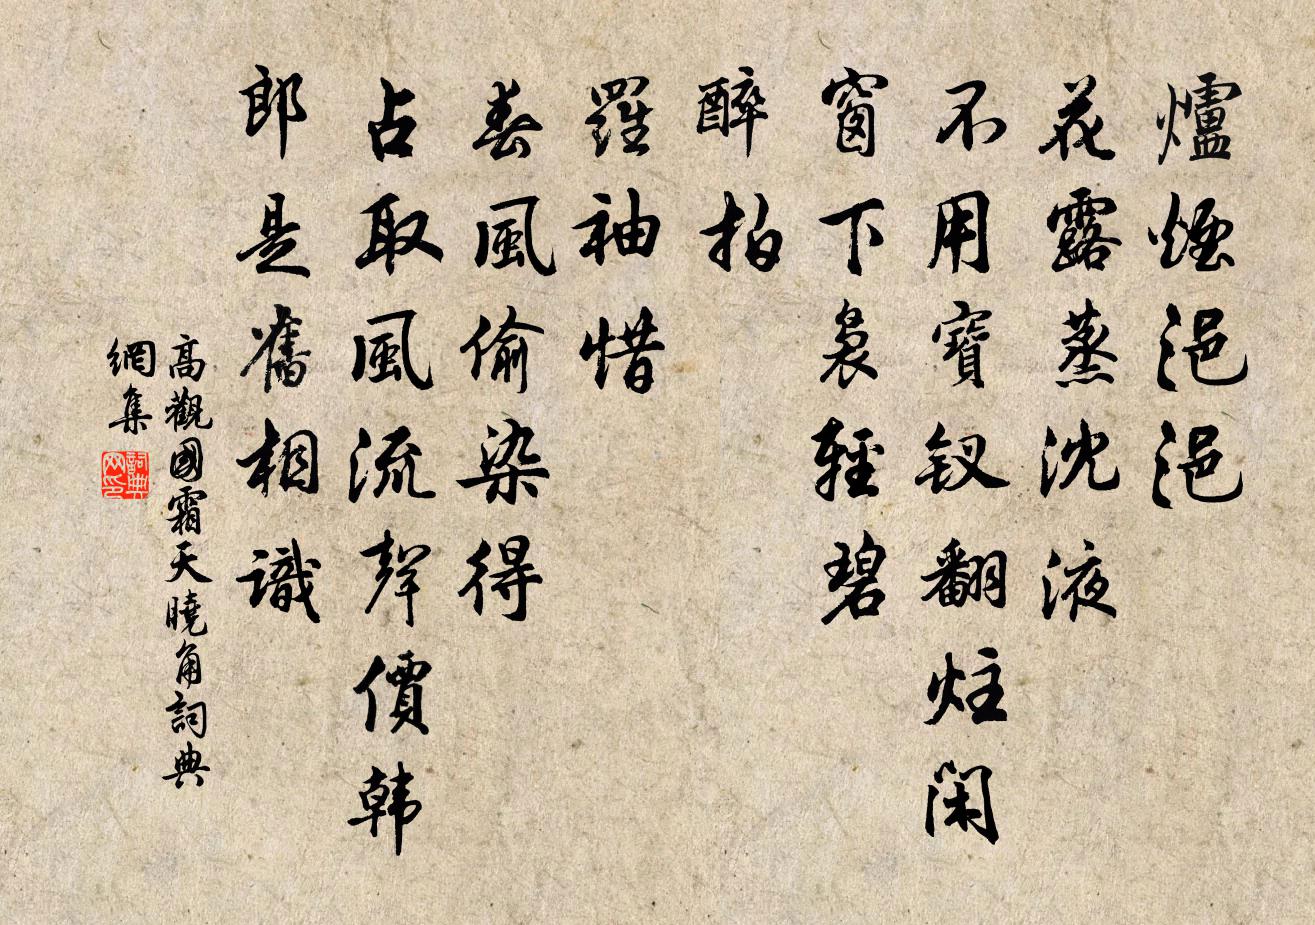 爐煙浥浥
花露蒸沈液
不用寶釵翻炷闲
窗下裊輕碧
醉拍
羅袖惜
春風偷染得
占取風流聲價韩
郎是舊相識
高觀國霜天曉角詞典
網集
詞典网